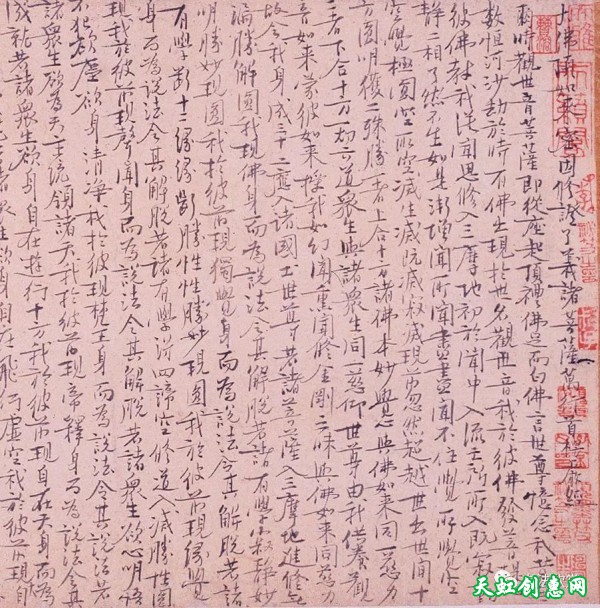 大佛頂如來密因修證了義諸菩薩萬行首楞嚴經
爾時觀世音菩薩即從座起頂禮佛足而白佛言世尊憶念我昔
數恒河沙劫於時有佛出現於世名觀世音我於彼佛發菩
彼佛教我從聞思修入三摩地初於聞中入流亡所所入既寂
靜二相了然不生如是漸增聞所聞盡盡聞不住覺所覺空
空覺極圓空所空滅生滅既滅寂滅現前忽然超越世出世間十
方圓明獲二殊勝一者上合十方諸佛本妙覺心與佛如來同一慈力
二者下合十方一切六道衆生與諸衆生同一悲仰世尊由我供養觀
音如來蒙彼如來授我如幻聞熏聞修金剛三昧與佛如來同慈力
故令我身成三十二應入諸國土世尊若諸菩薩入三摩地進修無
漏勝解圓我現佛身而為說法令其解脫若諸有學寂静妙
明勝妙現圓我於彼前現獨覺身而為說法令其解脫若諸
有學斷十二緣緣斷勝性勝妙現圓我於彼前現緣覺
身而為說法令其解脫若諸有學得四諦空修道入滅勝性圓
現我於彼前現聲聞身而為說法令其解脫若諸衆生欲心明悟
不犯欲塵欲身清淨我於彼現梵王身而為說法令其解脫若
諸衆生欲為天主統領諸天我於彼前現帝釋身而為說法令其
成就若諸衆生欲身自在遊行十方我於彼前現自在天身而為
諸衆生欲身自在飛行虛空我於彼前現自
天虹创意网